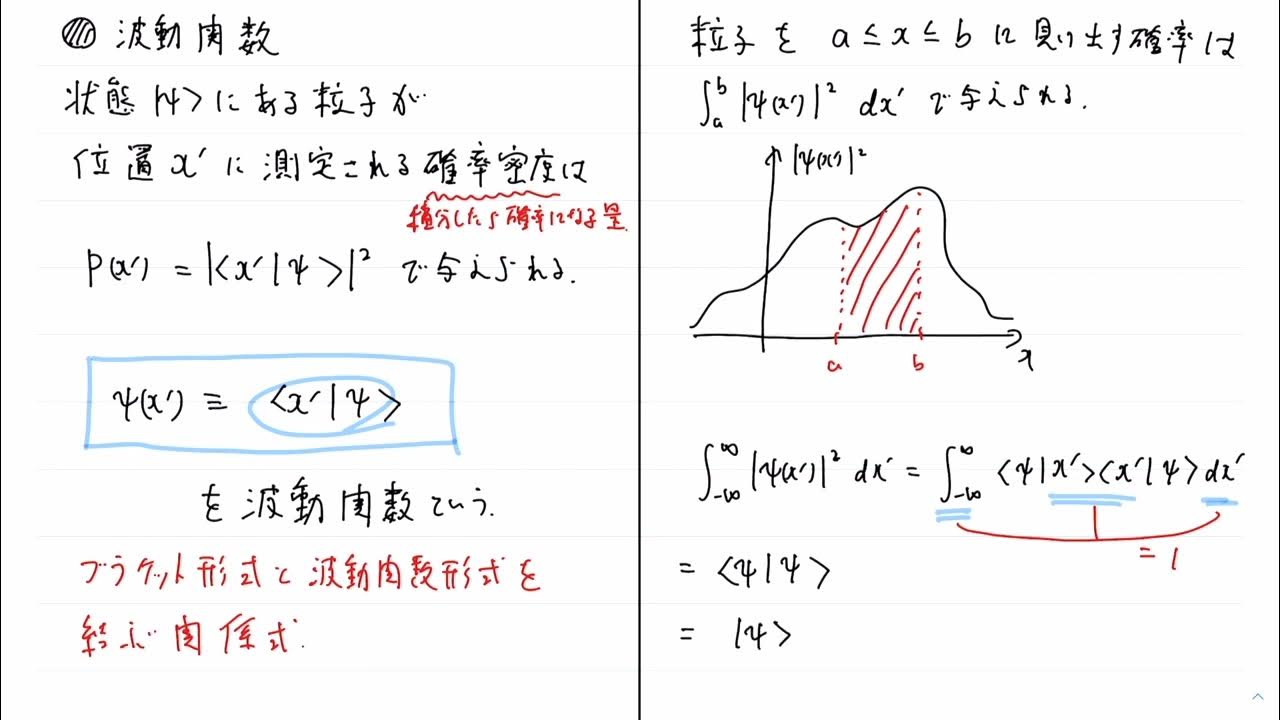 波動関数
状態 |ψ> にある粒子が
位置 x' に測定される確率密度は
積分したら確率になる量.
P(x') = |<x'|ψ>|² で与えられる.
ψ(x') ≡ <x'|ψ>
を波動関数という.
ブラケット形式と波動関数形式を
結ぶ関係式.
粒子を a ≤ x ≤ b に見い出す確率は
∫ₐᵇ |ψ(x')|² dx' で与えられる.
|ψ(x')|²
a b x
∫_{-∞}^{∞} |ψ(x')|² dx' = ∫_{-∞}^{∞} <ψ|x'><x'|ψ> dx'
= 1
= <ψ|ψ>
= |ψ>